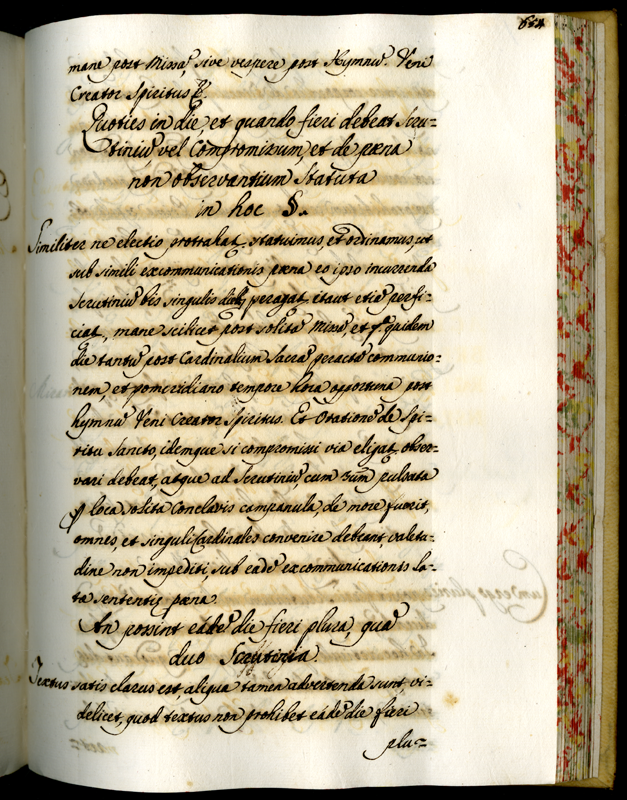 654
mane post Missã, sive vespere post Hymnũ. Veni
Creator Spiritus
Quoties in die, et quando fieri debeat Scru=
tiniũ, vel Compromissum, et de pæna
non observantium Statuta
in hoc §.
Similiter ne electio protrahat, statuimus, et ordinamus, ut
sub simili excommunicationis pæna eo ipso incurrenda
Scrutiniũ bis singulis dieb, peragat, itaut etiã perfi=
ciat, mane scilicet post solitã Missã, et pª quidem
die tantũ post Cardinalium Sacrã peractã communio=
nem, et pomeridiano tempore hora opportuna post
hymnũ Veni Creator Spiritus. Et Orationẽ de Spi=
ritu Sancto, idemque si compromissi via eligat, obser=
vari debeat, atque ad Scrutiniũ, cum pulsata
p loca solita Conclavis campanula, de more fuerit,
omnes, et singuli Cardinales convenire debeant, valetu=
dine non impediti, sub eadẽ excommunicationis la=
tæ sententię pæna.
An possint eadẽ die fieri plura, quã
duo Scrutinia.
Textus satis clarus est, aliqua tamen advertenda sunt, vi=
delicet, quod textus non prohibet eadẽ die fieri
plu=